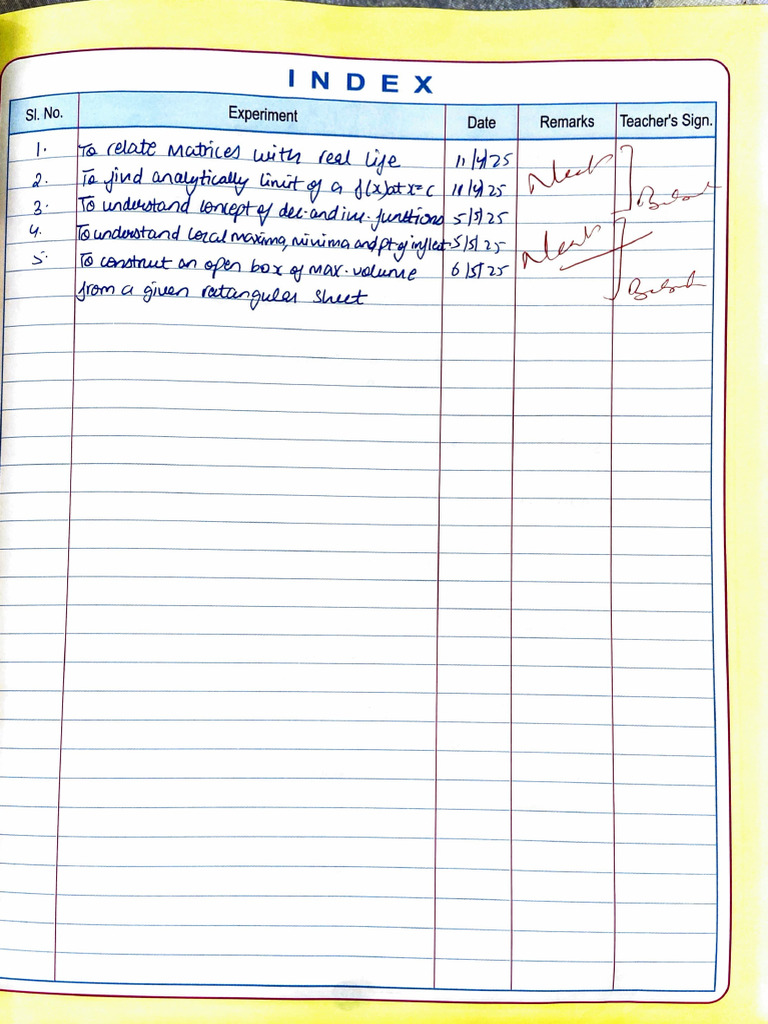 INDEX
Sl. No. Experiment Date Remarks Teacher's Sign.
1. To relate Matrices with real life 11/4/25 Neat
2. To find analytically limit of a f(x) at x=c 18/4/25
3. To understand concept of dec. and inc. functions 5/5/25
4. To understand local maxima, minima and pt of inflect. 5/5/25 Neat
5. To construct an open box of max. volume 6/5/25
from a given rectangular sheet